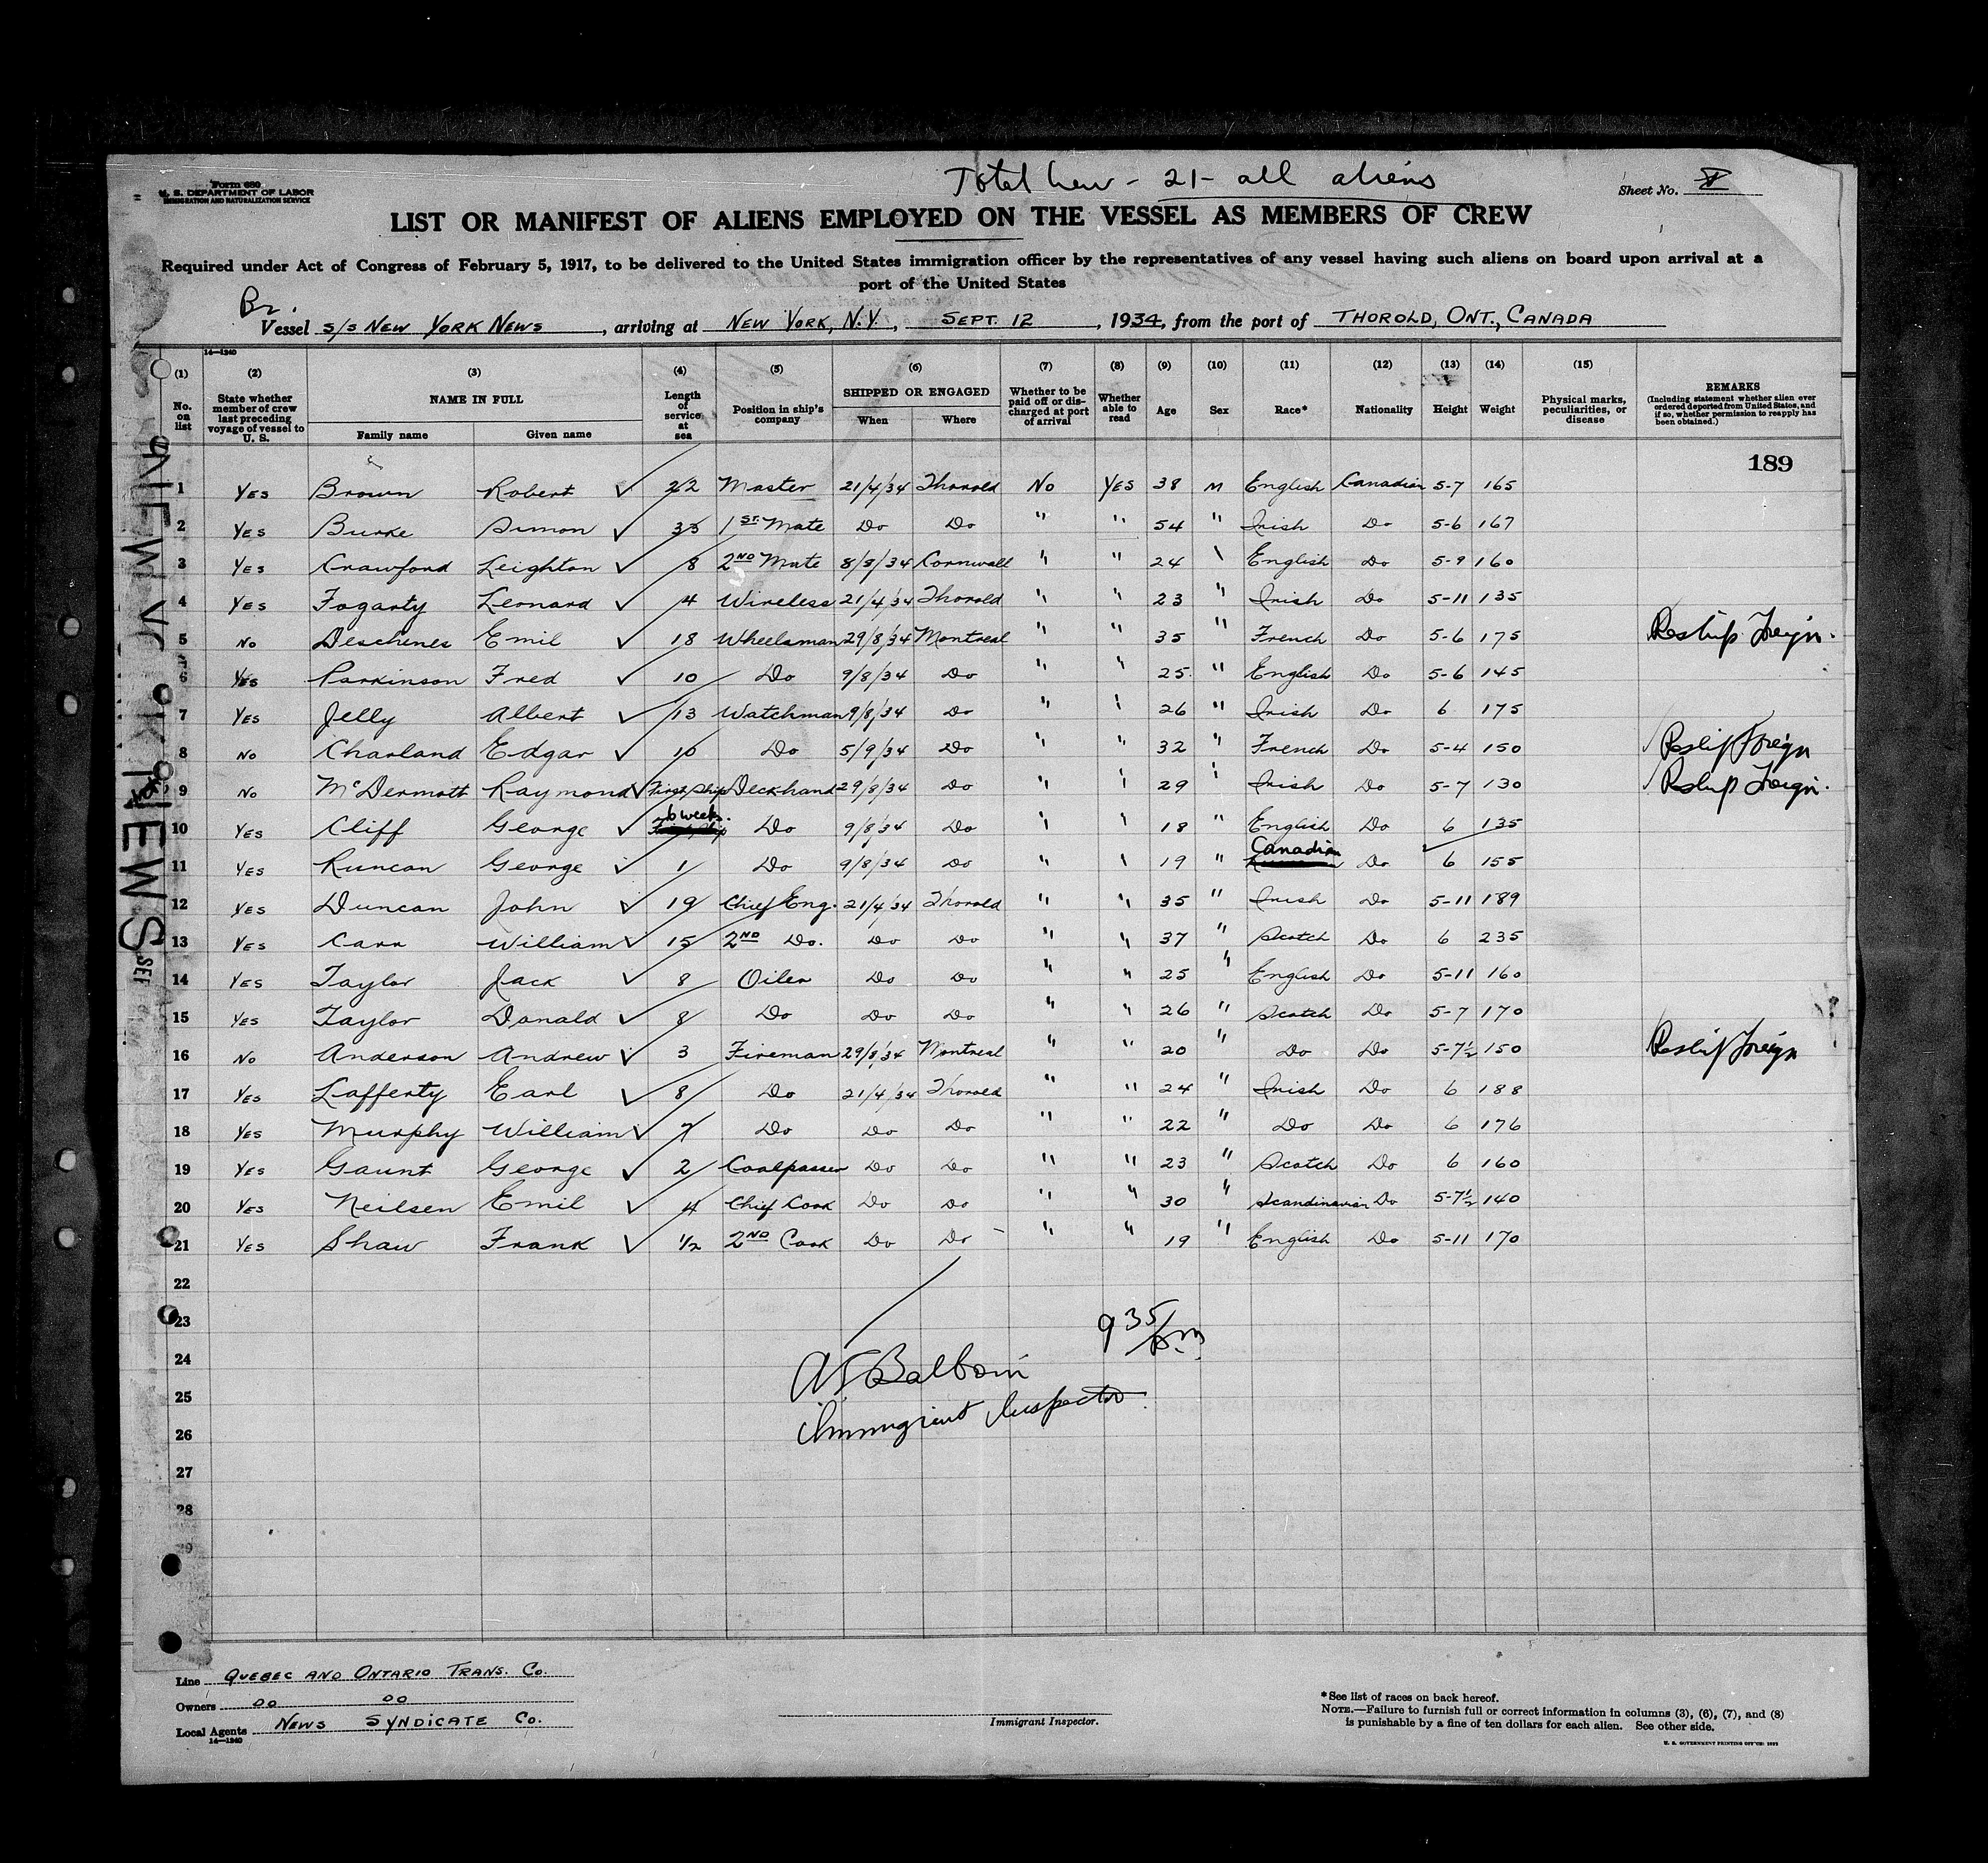 Total Crew - 21 - all aliens
Form 680
U. S. DEPARTMENT OF LABOR
IMMIGRATION AND NATURALIZATION SERVICE
Sheet No.
LIST OR MANIFEST OF ALIENS EMPLOYED ON THE VESSEL AS MEMBERS OF CREW
Required under Act of Congress of February 5, 1917, to be delivered to the United States immigration officer by the representatives of any vessel having such aliens on board upon arrival at a
port of the United States
Br.
Vessel S/S NEW YORK NEWS, arriving at NEW YORK, N.Y., SEPT. 12, 1934, from the port of THOROLD, ONT., CANADA
14—1240
(1) (2) (3) (4) (5) (6) (7) (8) (9) (10) (11) (12) (13) (14) (15)
No. on list
State whether member of crew last preceding voyage of vessel to U. S.
NAME IN FULL
Family name Given name
Length of service at sea
Position in ship's company
SHIPPED OR ENGAGED
When Where
Whether to be paid off or discharged at port of arrival
Whether able to read
Age Sex Race* Nationality Height Weight
Physical marks, peculiarities, or disease
REMARKS
(Including statement whether alien ever ordered deported from United States, and if so, whether permission to reapply has been obtained.)
189
1 YES Brown Robert ✓ 22 Master 21/4/34 Thorold No YES 38 M English Canadian 5-7 165
2 YES Burke Simon ✓ 35 1ST Mate Do Do " " 54 " Irish Do 5-6 167
3 YES Crawford Leighton ✓ 8 2ND Mate 8/8/34 Cornwall " " 24 \ English Do 5-9 160
4 YES Fogarty Leonard ✓ 4 Wireless 21/4/34 Thorold " " 23 " Irish Do 5-11 135
5 No Deschenes Emil ✓ 18 Wheelsman 29/8/34 Montreal " " 35 " French Do 5-6 175 Reship Foreign.
6 Yes Parkinson Fred ✓ 10 Do 9/8/34 Do " " 25 " English Do 5-6 145
7 YES Jelly Albert ✓ 13 Watchman 9/8/34 Do " " 26 " Irish Do 6 175
8 No Charland Edgar ✓ 10 Do 5/9/34 Do " " 32 " French Do 5-4 150 Reship Foreign
9 No McDermott Raymond ✓ First Ship Deckhand 29/8/34 Do " " 29 " Irish Do 5-7 130 Reship Foreign.
10 YES Cliff George ✓ 6 weeks. Do 9/8/34 Do " " 18 " English Do 6 135
11 YES Runcan George ✓ 1 Do 9/8/34 Do " " 19 " Canadian Do 6 155
12 YES Duncan John ✓ 19 Chief Eng. 21/4/34 Thorold " " 35 " Irish Do 5-11 189
13 YES Carr William ✓ 15 2ND Do. Do Do " " 37 " Scotch Do 6 235
14 YES Taylor Jack ✓ 8 Oiler Do Do " " 25 " English Do 5-11 160
15 YES Taylor Donald ✓ 8 Do Do Do " " 26 " Scotch Do 5-7 170
16 No Anderson Andrew ✓ 3 Fireman 29/8/34 Montreal " " 20 " Do Do 5-7½ 150 Reship Foreign
17 YES Lafferty Earl ✓ 8 Do 21/4/34 Thorold " " 24 " Irish Do 6 188
18 YES Murphy William ✓ 7 Do Do Do " " 22 " Do Do 6 176
19 YES Gaunt George ✓ 2 Coalpasser Do Do " " 23 " Scotch Do 6 160
20 YES Neilsen Emil ✓ 4 Chief Cook Do Do " " 30 " Scandinavian Do 5-7½ 140
21 YES Shaw Frank ✓ 1/2 2ND Cook Do Do " " 19 " English Do 5-11 170
22
23
24
25
26
27
28
29
9 35 am
Immigrant Inspector
NEW YORK NEWS
SEP
Line QUEBEC AND ONTARIO TRANS. CO.
Owners DO DO
Local Agents NEWS SYNDICATE CO.
14—1240
Immigrant Inspector.
*See list of races on back hereof.
NOTE.—Failure to furnish full or correct information in columns (3), (6), (7), and (8)
is punishable by a fine of ten dollars for each alien. See other side.
U. S. GOVERNMENT PRINTING OFFICE: